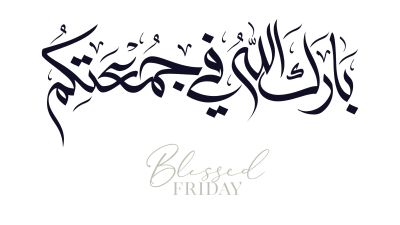 بَارَكَ اللهُ فِي جُمُعَتِكُمْ
Blessed
FRIDAY